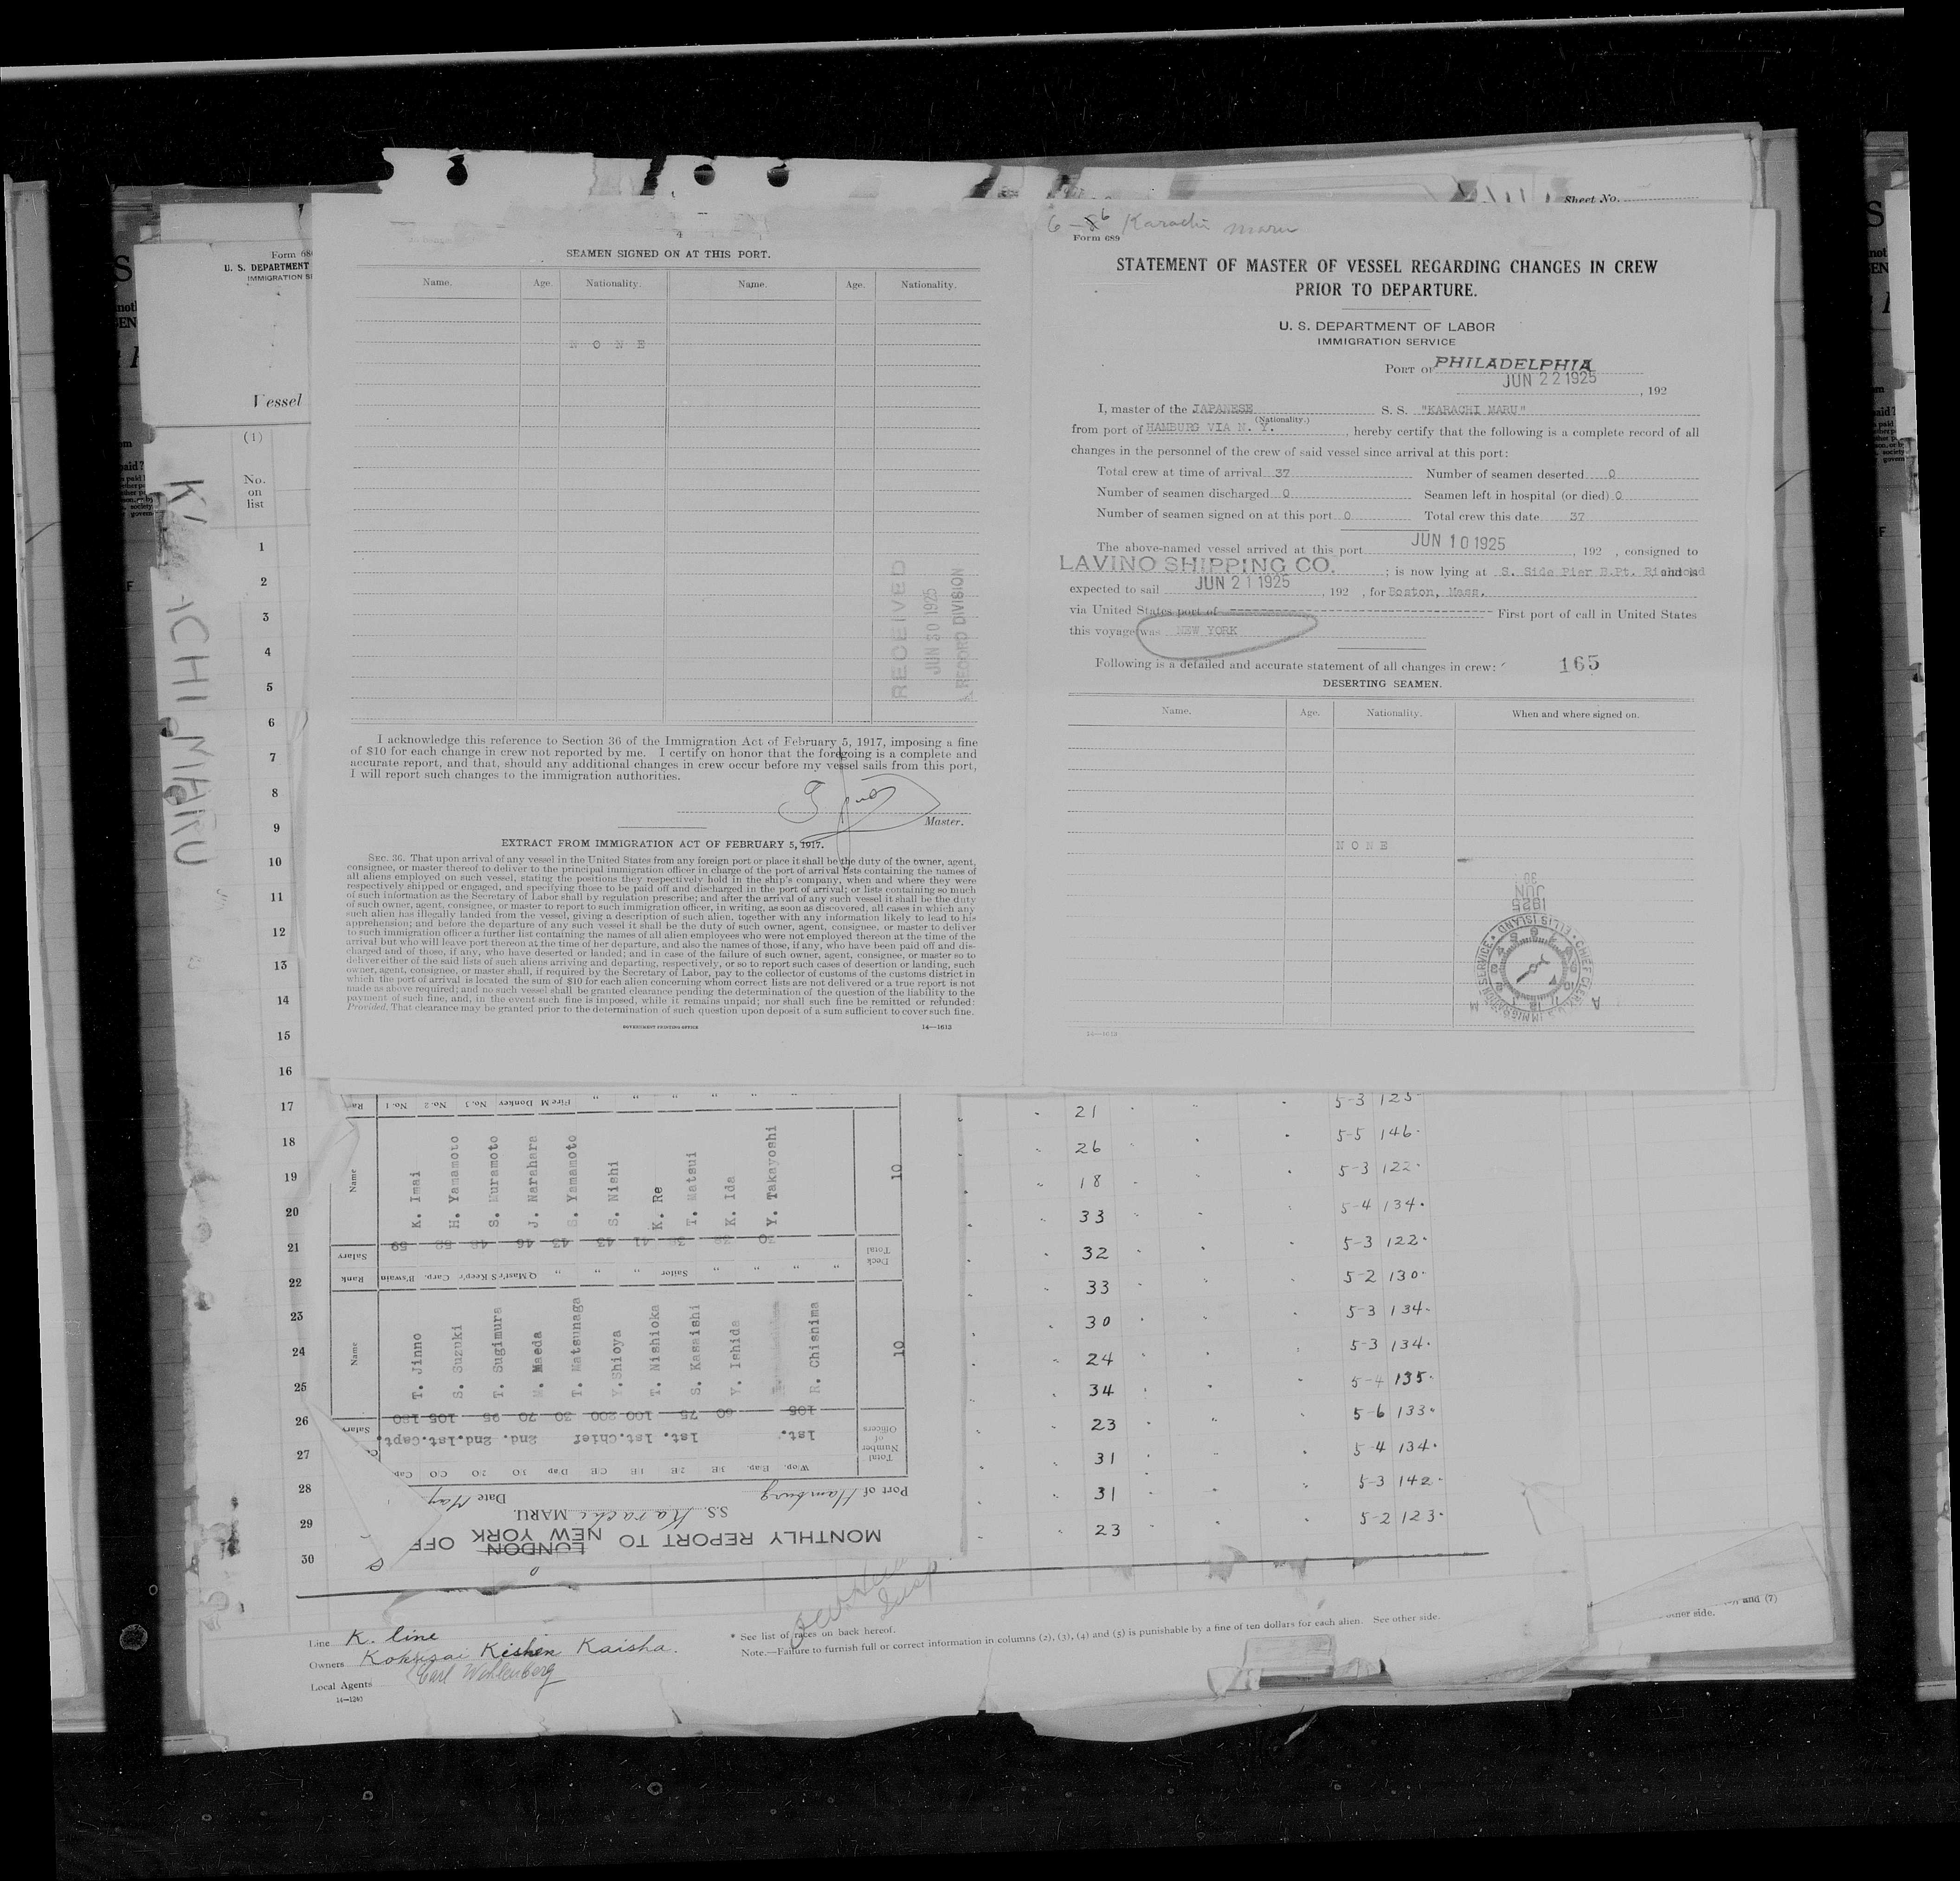 Sheet No.
6-6 Karachi Maru
Form 689
STATEMENT OF MASTER OF VESSEL REGARDING CHANGES IN CREW
PRIOR TO DEPARTURE.
U. S. DEPARTMENT OF LABOR
IMMIGRATION SERVICE
PORT OF PHILADELPHIA
JUN 22 1925 , 192
I, master of the JAPANESE S. S. "KARACHI MARU"
(Nationality.)
from port of HAMBURG VIA N. Y. , hereby certify that the following is a complete record of all
changes in the personnel of the crew of said vessel since arrival at this port:
Total crew at time of arrival 37 Number of seamen deserted 0
Number of seamen discharged 0 Seamen left in hospital (or died) 0
Number of seamen signed on at this port 0 Total crew this date 37
The above-named vessel arrived at this port JUN 10 1925 , 192 , consigned to
LAVINO SHIPPING CO. ; is now lying at S. Side Pier B.Pt. Richmond and is
expected to sail JUN 21 1925 , 192 , for Boston, Mass.
via United States port of ---------- First port of call in United States
this voyage was NEW YORK
Following is a detailed and accurate statement of all changes in crew: 165
DESERTING SEAMEN.
Name. Age. Nationality. When and where signed on.
NONE
1925
JUN
30
CHIEF CLERK U.S. IMMIGRATION SERVICE ELLIS ISLAND
A M
14—1613
4
SEAMEN SIGNED ON AT THIS PORT.
Name. Age. Nationality. Name. Age. Nationality.
NONE
RECEIVED
JUN 30 1925
RECORD DIVISION
I acknowledge this reference to Section 36 of the Immigration Act of February 5, 1917, imposing a fine
of $10 for each change in crew not reported by me. I certify on honor that the foregoing is a complete and
accurate report, and that, should any additional changes in crew occur before my vessel sails from this port,
I will report such changes to the immigration authorities.
Master.
EXTRACT FROM IMMIGRATION ACT OF FEBRUARY 5, 1917.
SEC. 36. That upon arrival of any vessel in the United States from any foreign port or place it shall be the duty of the owner, agent,
consignee, or master thereof to deliver to the principal immigration officer in charge of the port of arrival lists containing the names of
all aliens employed on such vessel, stating the positions they respectively hold in the ship's company, when and where they were
respectively shipped or engaged, and specifying those to be paid off and discharged in the port of arrival; or lists containing so much
of such information as the Secretary of Labor shall by regulation prescribe; and after the arrival of any such vessel it shall be the duty
of such owner, agent, consignee, or master to report to such immigration officer, in writing, as soon as discovered, all cases in which any
such alien has illegally landed from the vessel, giving a description of such alien, together with any information likely to lead to his
apprehension; and before the departure of any such vessel it shall be the duty of such owner, agent, consignee, or master to deliver
to such immigration officer a further list containing the names of all alien employees who were not employed thereon at the time of the
arrival but who will leave port thereon at the time of her departure, and also the names of those, if any, who have been paid off and dis-
charged and of those, if any, who have deserted or landed; and in case of the failure of such owner, agent, consignee, or master so to
deliver either of the said lists of such aliens arriving and departing, respectively, or so to report such cases of desertion or landing, such
owner, agent, consignee, or master shall, if required by the Secretary of Labor, pay to the collector of customs of the customs district in
which the port of arrival is located the sum of $10 for each alien concerning whom correct lists are not delivered or a true report is not
made as above required; and no such vessel shall be granted clearance pending the determination of the question of the liability to the
payment of such fine, and, in the event such fine is imposed, while it remains unpaid; nor shall such fine be remitted or refunded:
Provided, That clearance may be granted prior to the determination of such question upon deposit of a sum sufficient to cover such fine.
GOVERNMENT PRINTING OFFICE 14—1613
Form 68
U. S. DEPARTMENT
IMMIGRATION S
Vessel
(1)
No.
on
list
1
2
3
4
5
6
7
8
9
10
11
12
13
14
15
16
17
18
19
20
21
22
23
24
25
26
27
28
29
30
MARU
MONTHLY REPORT TO LONDON NEW YORK OFF
S.S. Karachi MARU.
Port of Hamburg Date May
Total Number of Officers
Name
T. Jinno
S. Suzuki
T. Sugimura
M. Maeda
T. Matsunaga
Y. Shioya
T. Nishioka
S. Kasaishi
Y. Ishida
R. Chishima
10
Rank B'swain Carp. S Keep'r QMast'r " " " Sailor " " " "
Salary
Deck Total
Name
K. Imai
H. Yamamoto
S. Muramoto
J. Narahara
S. Yamamoto
S. Nishi
K. Re
T. Matsui
K. Ida
Y. Takayoshi
10
No.1 No.2 No.3 Donkey Fire M " " " " " "
21 5-3 125
26 5-5 146
18 5-3 122
33 5-4 134
32 5-3 122
33 5-2 130
30 5-3 134
24 5-3 134
34 5-4 135
23 5-6 133
31 5-4 134
31 5-3 142
23 5-2 123
Line K. line
Owners Kokusai Kishen Kaisha.
Local Agents Carl Wihlenberg
14—1240
* See list of races on back hereof.
Note.—Failure to furnish full or correct information in columns (2), (3), (4) and (5) is punishable by a fine of ten dollars for each alien. See other side.
and (7)
other side.